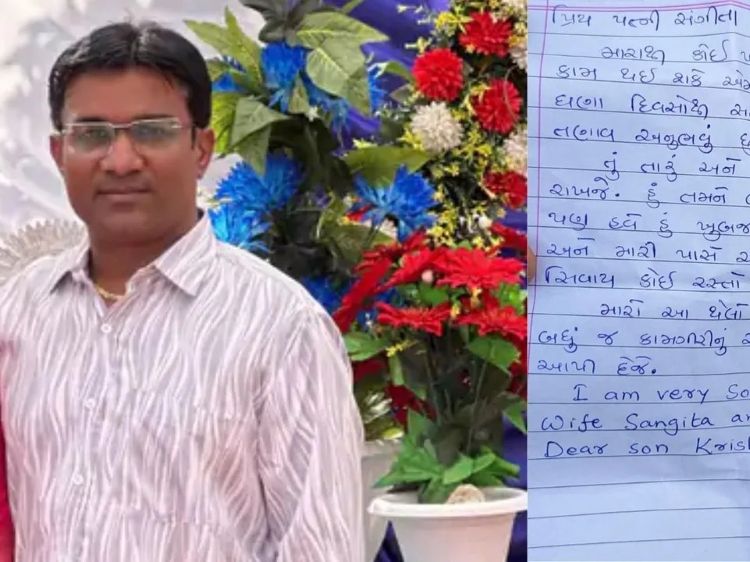 પ્રિય પત્ની સંગીતા
મારાથી કોઈ
કામ થઈ શકે
ઘણા દિવસોથી
તણાવ અનુભવું
તું તારું અને
રાખજે. હું તમને
પણ હવે હું ખુબજ
અને મારી પાસે
સિવાય કોઈ રસ્તો
મારો આ થેલો
બધું જ કામગીરીનું
આપી દેજે.
I am very
Wife Sangita
Dear son